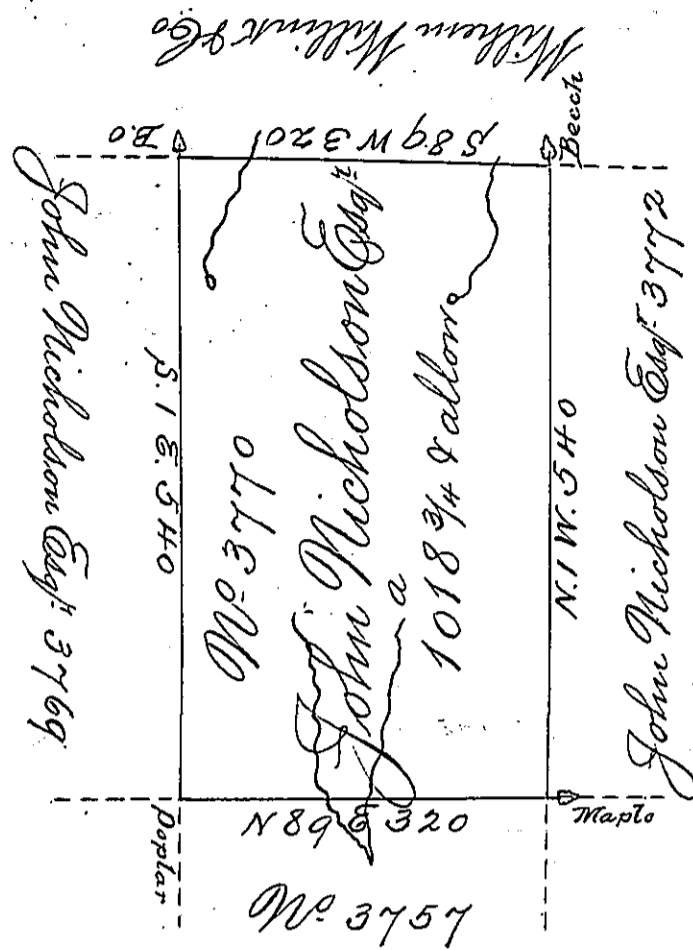 Wilhem Willink & Co
Beech
B.O
S 89 W 320
John Nicholson Esqr. 3769
S. 1 E. 540
No. 3770
John Nicholson Esqr
a
1018 3/4 & allow
N. 1 W. 540
John Nicholson Esqr. 3772
Poplar
N 89 E 320
Maple
No. 3757